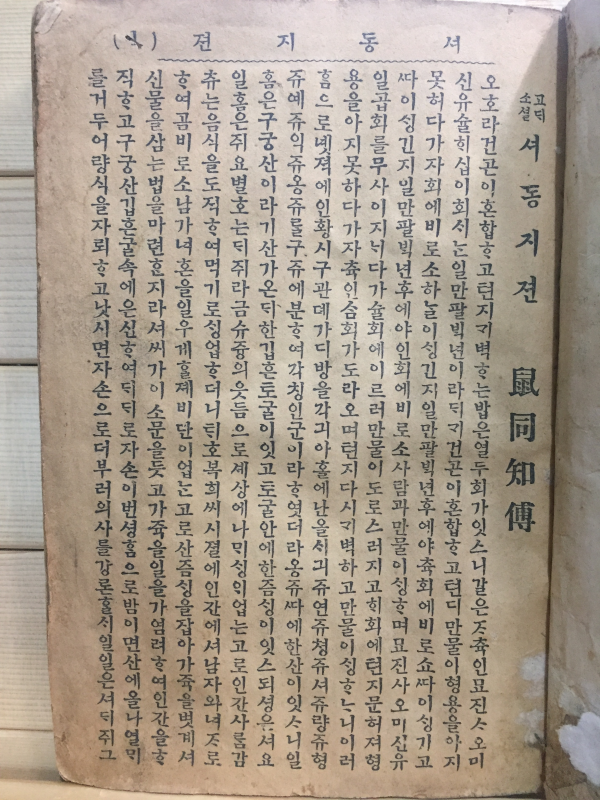 셔동지젼
고ᄃᆡ
소셜
셔동지젼 鼠同知傳
오호라건곤이혼합ᄒᆞ고텬지ᄀᆡ벽ᄒᆞ는밥은열두회가잇스니갈은ᄌᆞ츅인묘진ᄉᆞ오미
신유슐ᄒᆡ십이회셔ᄂᆞᆫ일만팔ᄇᆡᆨ년이라ᄃᆡᄀᆡ건곤이혼합ᄒᆞ고텬디만물이형용을아지
못허다가자회에비로소하ᄂᆞᆯ이ᄉᆡᆼ긴지일만팔ᄇᆡᆨ년후에야츅회에비로쇼ᄯᅡ이ᄉᆡᆼ기고
ᄯᅡ이ᄉᆡᆼ긴지일만팔ᄇᆡᆨ년후에야인회에비로소사람과만물이ᄉᆡᆼᄒᆞ며묘진사오미신유
일곱회를무사이지ᄂᆡ다가슐회에이르러만물이도로스러지고ᄒᆡ회에텬지문허져형
용을아지못하다가자츅인슴회가도라오며텬지다시ᄀᆡ벽하고만물이ᄉᆡᆼᄒᆞᄂᆞ니이러
홈으로녯젹에인황시구관데가디방을각긔아홀에난을ᄉᆡ긔쥬연쥬쳥쥬셔쥬량쥬형
쥬예쥬익쥬옹쥬를구쥬에분ᄒᆞ여각칭인군이라ᄒᆞ엿더라옹쥬ᄯᅡ에한산이잇스니일
홈은구궁산이라기산가온ᄃᆡ한깁흔토굴이잇고토굴안에한즘ᄉᆡᆼ이잇스되셩은셔요
일홈은쥐요별호는ᄃᆡ쥐라금슈즁의웃듬으로셰상에나ᄆᆡᄉᆡᆼ업는고로인간사ᄅᆞᆷ감
츄는음식을도적ᄒᆞ여먹기로ᄉᆡᆼ업ᄒᆞ더니ᄐᆡ호복희씨시졀에인간에셔남자와녀ᄌᆞ로
ᄒᆞ여곰비로소남가녀혼을일우게ᄒᆞᆯᄉᆡ비단이업ᄂᆞᆫ고로산즘ᄉᆡᆼ을잡아가쥭을벗계셔
신물을삼ᄂᆞᆫ법을마련ᄒᆞᆫ지라셔씨가이소문을듯고가쥭을일을가염려ᄒᆞ여인간을ᄒᆞ
직ᄒᆞ고구궁산깁흔굴속에은신ᄒᆞ여ᄃᆡᄃᆡ로자손이번셩홈으로밤이면산에올나열ᄆᆡ
를거두어량식을자뢰ᄒᆞ고낫시면자손으로더부러의사를강론ᄒᆞᆯᄉᆡ일일은셔ᄃᆡ쥐그